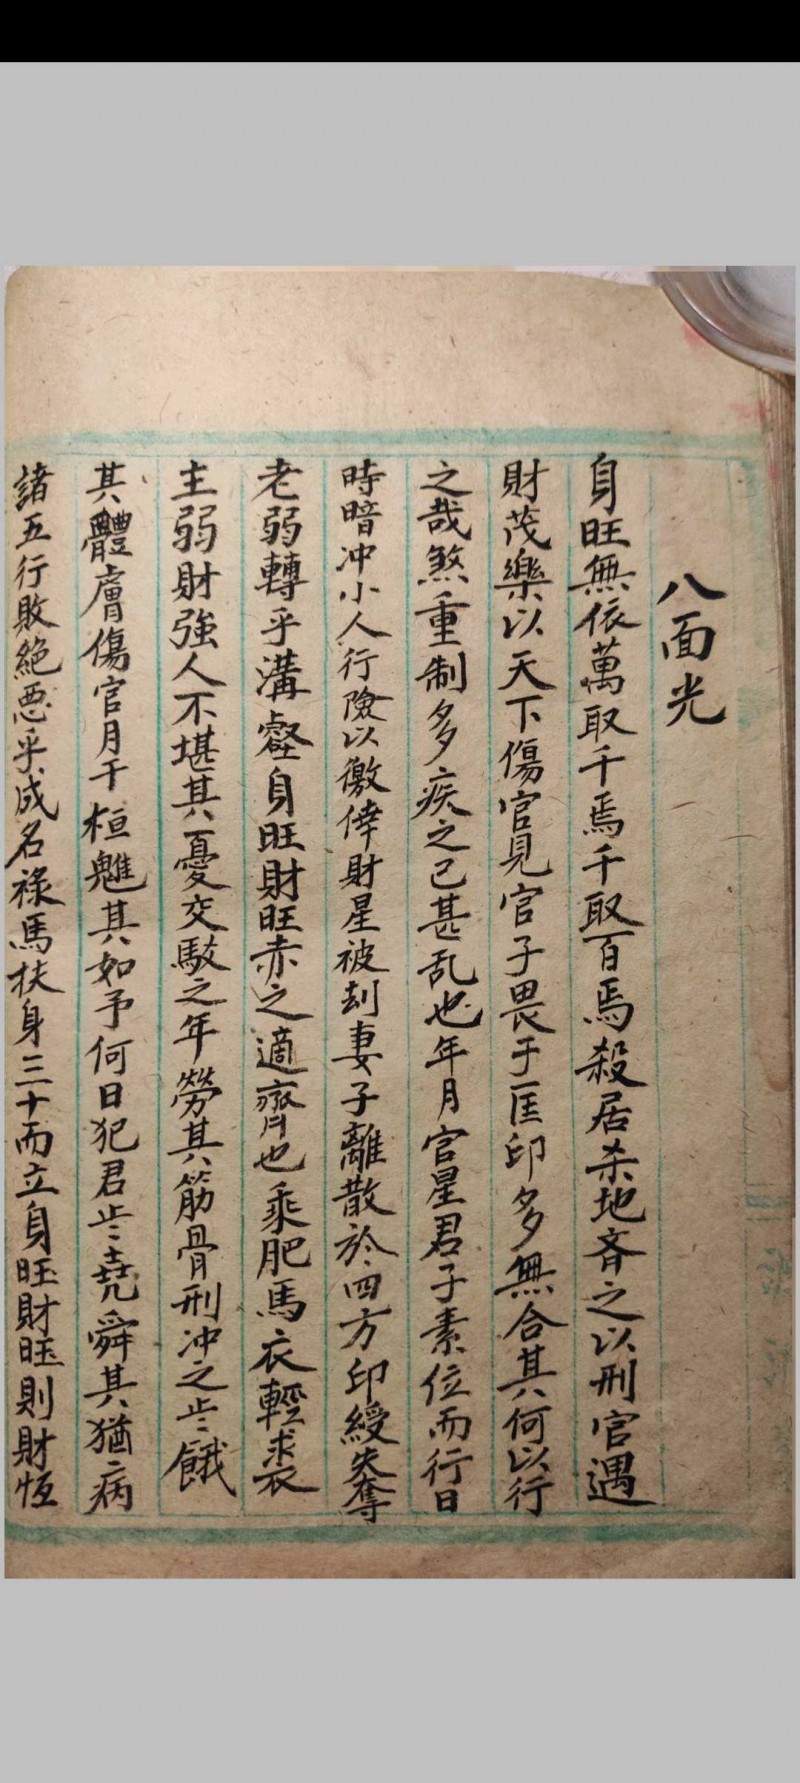 八面光
身旺無依萬取千焉千取百焉殺居杀地斉之以刑官遇
財茂樂以天下傷官見官子畏于匡印多無合其何以行
之哉煞重制多疾之已甚乱也年月官星君子素位而行日
時暗冲小人行險以徼倖財星被刦妻子離散於四方印綬失奪
老弱轉乎溝壑身旺財旺赤之適齊也乘肥馬衣輕裘
主弱財強人不堪其憂交馭之年勞其筋骨刑冲之步餓
其體膚傷官月干桓魋其如予何日犯君步堯舜其猶病
諸五行敗絕悪乎成名祿馬扶身三十而立身旺財旺則財恆